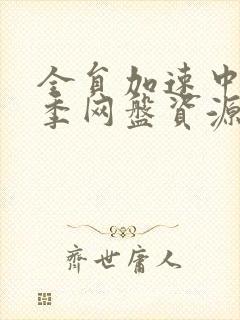 全自加速中
季网盘资源
齐世庸人